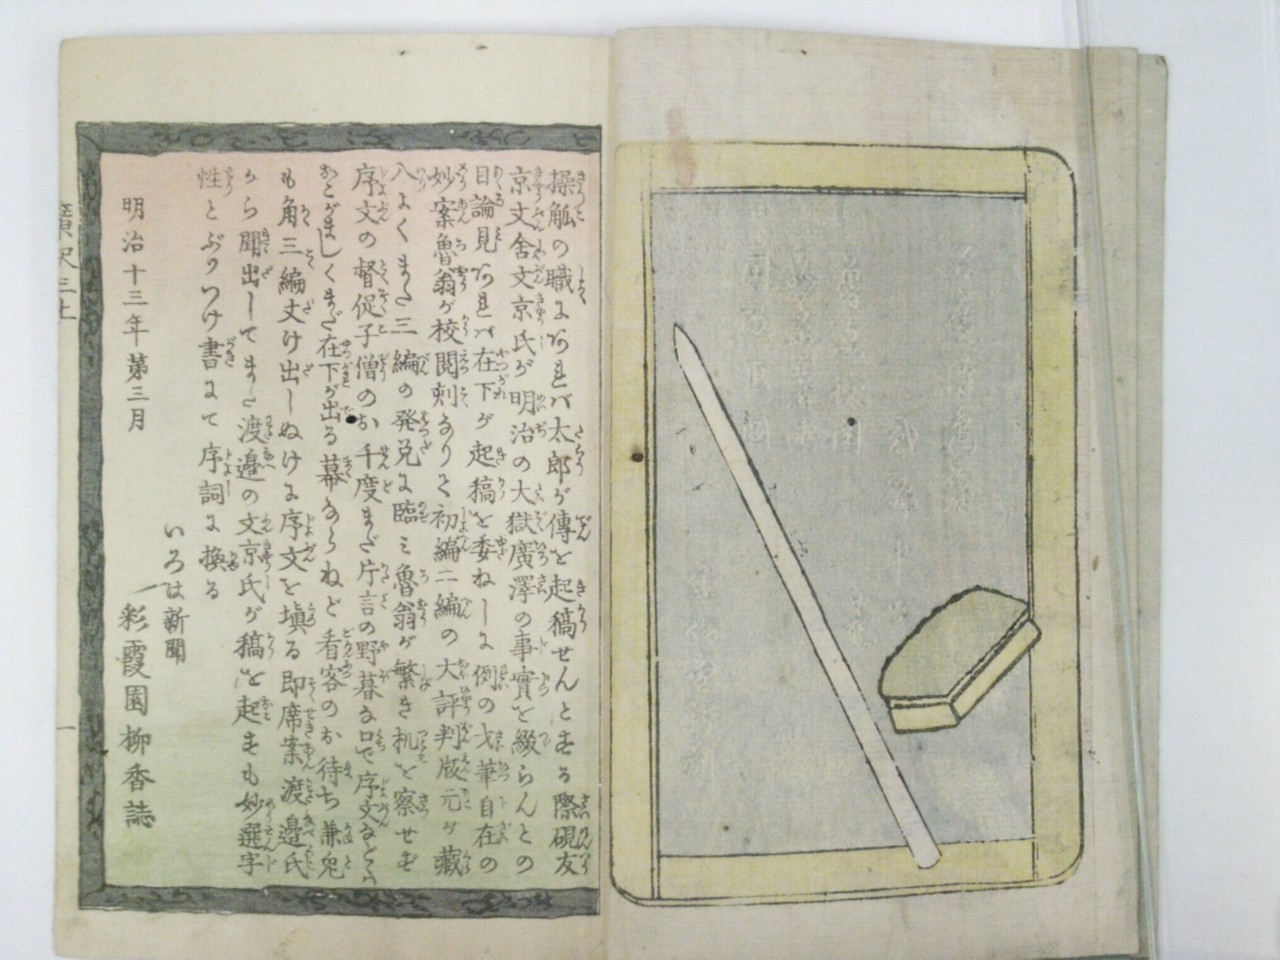 操觚の職にあれバ太郎が傳を起稿せんとする際硯友
京文舍文京氏が明治の大獄廣澤の事實を綴らんとの
目論見あれバ在下が起稿を委ねしに例の戈筆自在の
妙案魯翁が校閲剞なりて初編二編の大評判版元が藏
入よくまた三編の発兌に臨ミ魯翁が繁き机を察せず
序文の督促子僧のお千度まだ片言の野暮な口で序文などゝハ
おこがましくまだ在下が出る幕ならねど看客のお待ち兼兎
も角三編丈け出しぬけに序文を塡る即席案渡邉氏
から聞出してまた渡邉の文京氏が稿を起すも妙選字
性とぶツつけ書にて序詞に換る
いろは新聞
明治十三年第三月
彩霞園柳香誌
廣沢三上
一